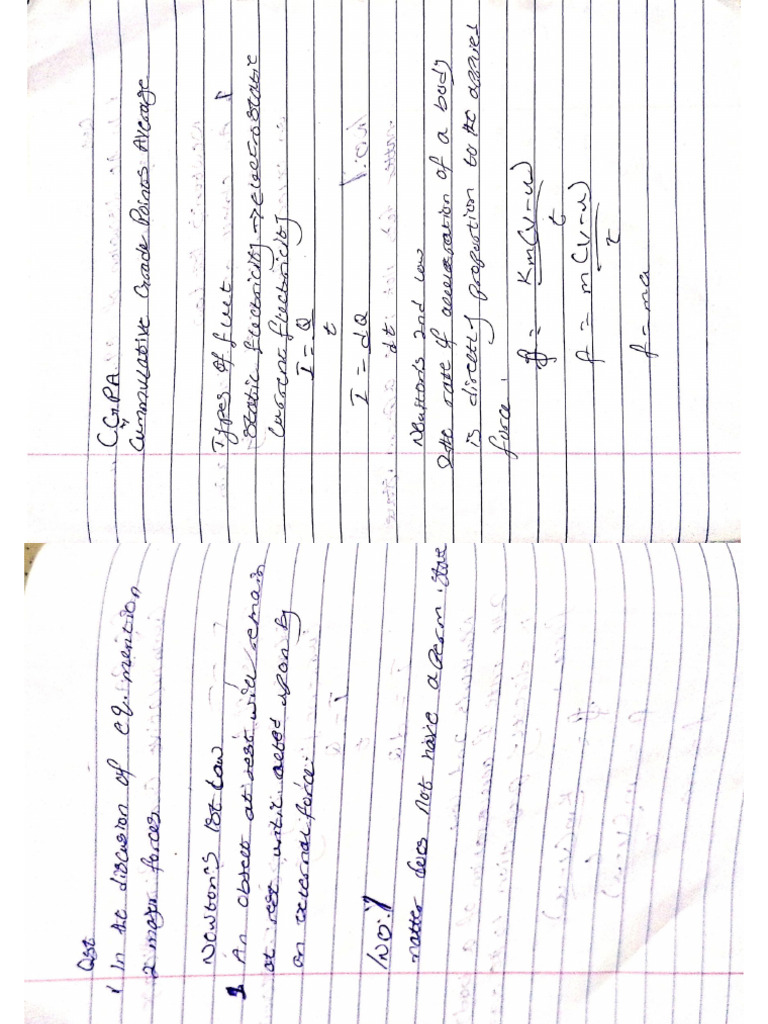 C.G.PA
Cummulative Grade Points Average
Types of
Static Electricity → Electrostatic
Current Electricity
I = Q
t
I = dQ
dt
Newton's 2nd Law
The rate of acceleration of a body
is directly proportion to the applied
force.
f = Km(v-u)
t
f = m(v-u)
t
f = ma
Qst
1 In the discusion of mention
2 major forces
Newton's 1st Law
1 An object at rest will remain
at rest until acted upon by
an external force.
NO:1
matter does Not have a perm